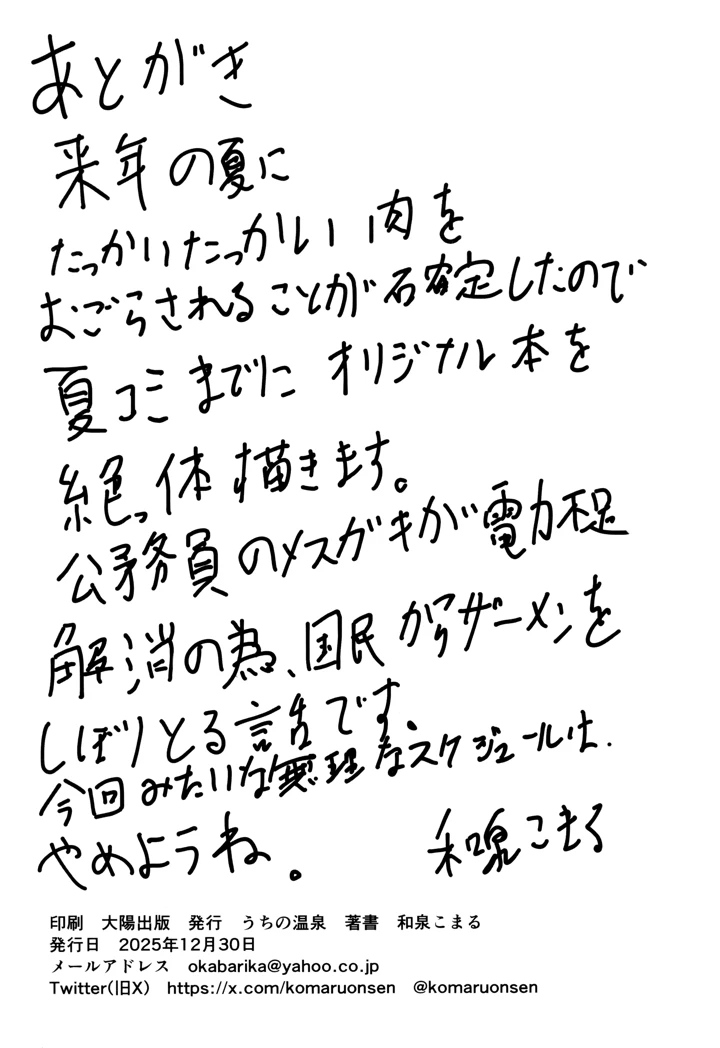 あとがき
来年の夏に
たっかいたっかしい肉を
おごらされることが確定したので
夏コミまでにオリジナル本を
絶っ体描きます。
公務員のメスガキが電力不足
解消の為、国民からザーメンを
しぼりとる話です。
今回みたいな無理なスケジュールは、
やめようね。 和泉こまる
印刷 大陽出版 発行 うちの温泉 著書 和泉こまる
発行日 2025年12月30日
メールアドレス okabarika@yahoo.co.jp
Twitter(旧X) https://x.com/komaruonsen @komaruonsen